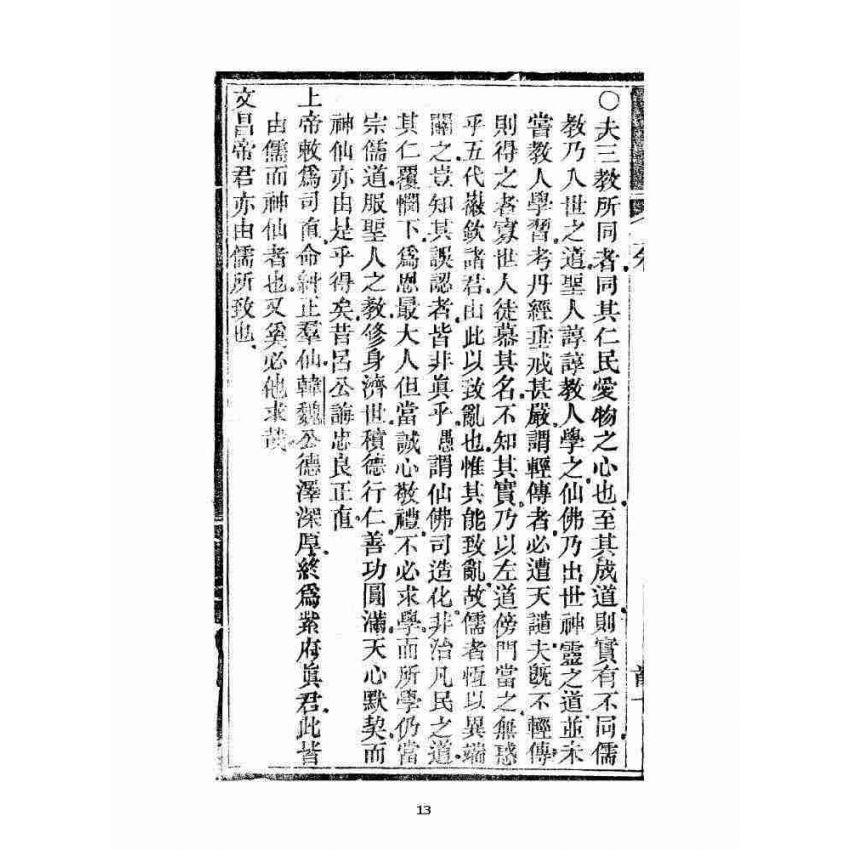 ○夫三教所同者同其仁民愛物之心也至其成道則實有不同儒
教乃入世之道聖人諄諄教人學之仙佛乃出世神靈之道並未
嘗教人學習考丹經垂戒甚嚴謂輕傳者必遭天譴夫既不輕傳
則得之者寡世人徒慕其名不知其實乃以左道傍門當之無惑
乎五代徽欽諸君由此以致亂也惟其能致亂故儒者恆以異端
闢之豈知其誤認者皆非眞乎愚謂仙佛司造化非治凡民之道
其仁覆憫下爲恩最大人但當誠心敬禮不必求學而所學仍當
宗儒道服聖人之教修身濟世積德行仁善功圓滿天心默契而
神仙亦由是乎得矣昔呂公誨忠良正直
上帝敕爲司直命糾正羣仙韓魏公德澤深厚終爲紫府眞君此皆
由儒而神仙者也又奚必他求哉
文昌帝君亦由儒所致也
13